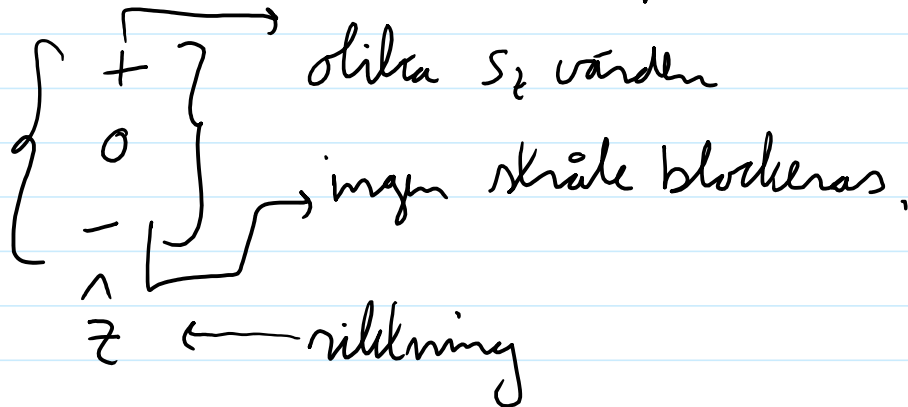 + olika S_z värden
0
ingen stråle blockeras.
-
ẑ ← riktning